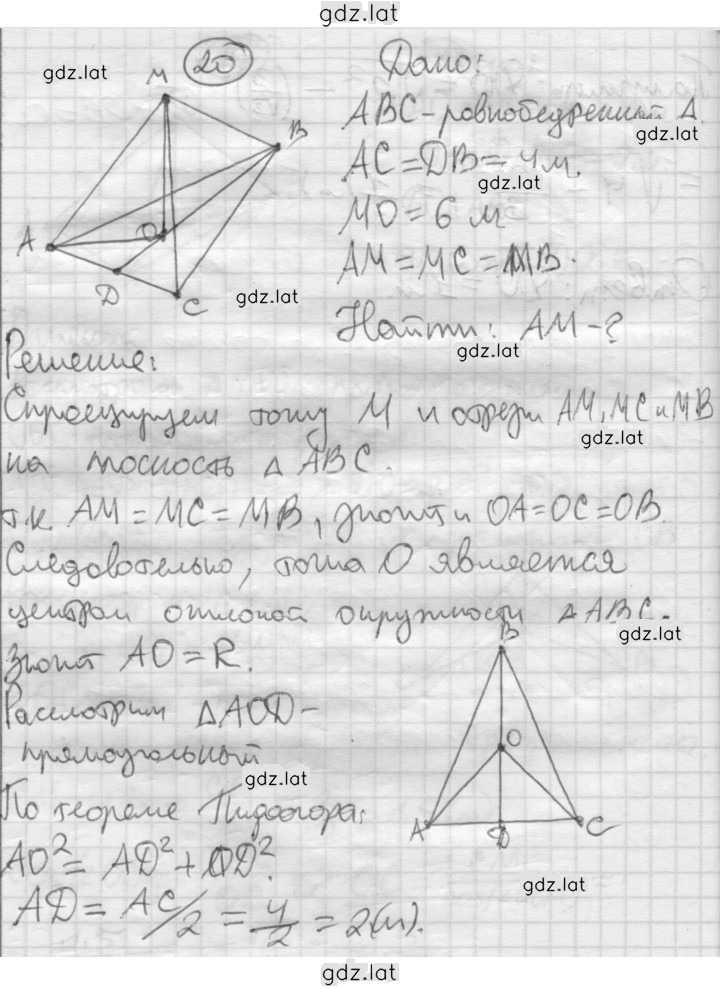 gdz.lat
20
gdz.lat
M
B
A
O
D
C
gdz.lat
Дано:
ABC - равнобедренный Δ.
gdz.lat
AC = DB = 4 м.
gdz.lat
MO = 6 м
AM = MC = MB.
Найти: AM - ?
gdz.lat
Решение:
Спроецируем точку M и отрезки AM, MC и MB
gdz.lat
на плоскость Δ ABC.
т.к. AM = MC = MB, значит и OA = OC = OB.
Следовательно, точка O является
центром описаной окружности Δ ABC.
gdz.lat
Значит AO = R.
Рассмотрим Δ AOD -
прямоугольный
gdz.lat
По теореме Пифагора:
AO² = AD² + OD².
AD = AC/2 = 4/2 = 2 (м).
B
O
A
D
C
gdz.lat
gdz.lat